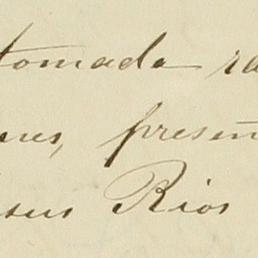 tomada ra
nes, presen
sus Rios